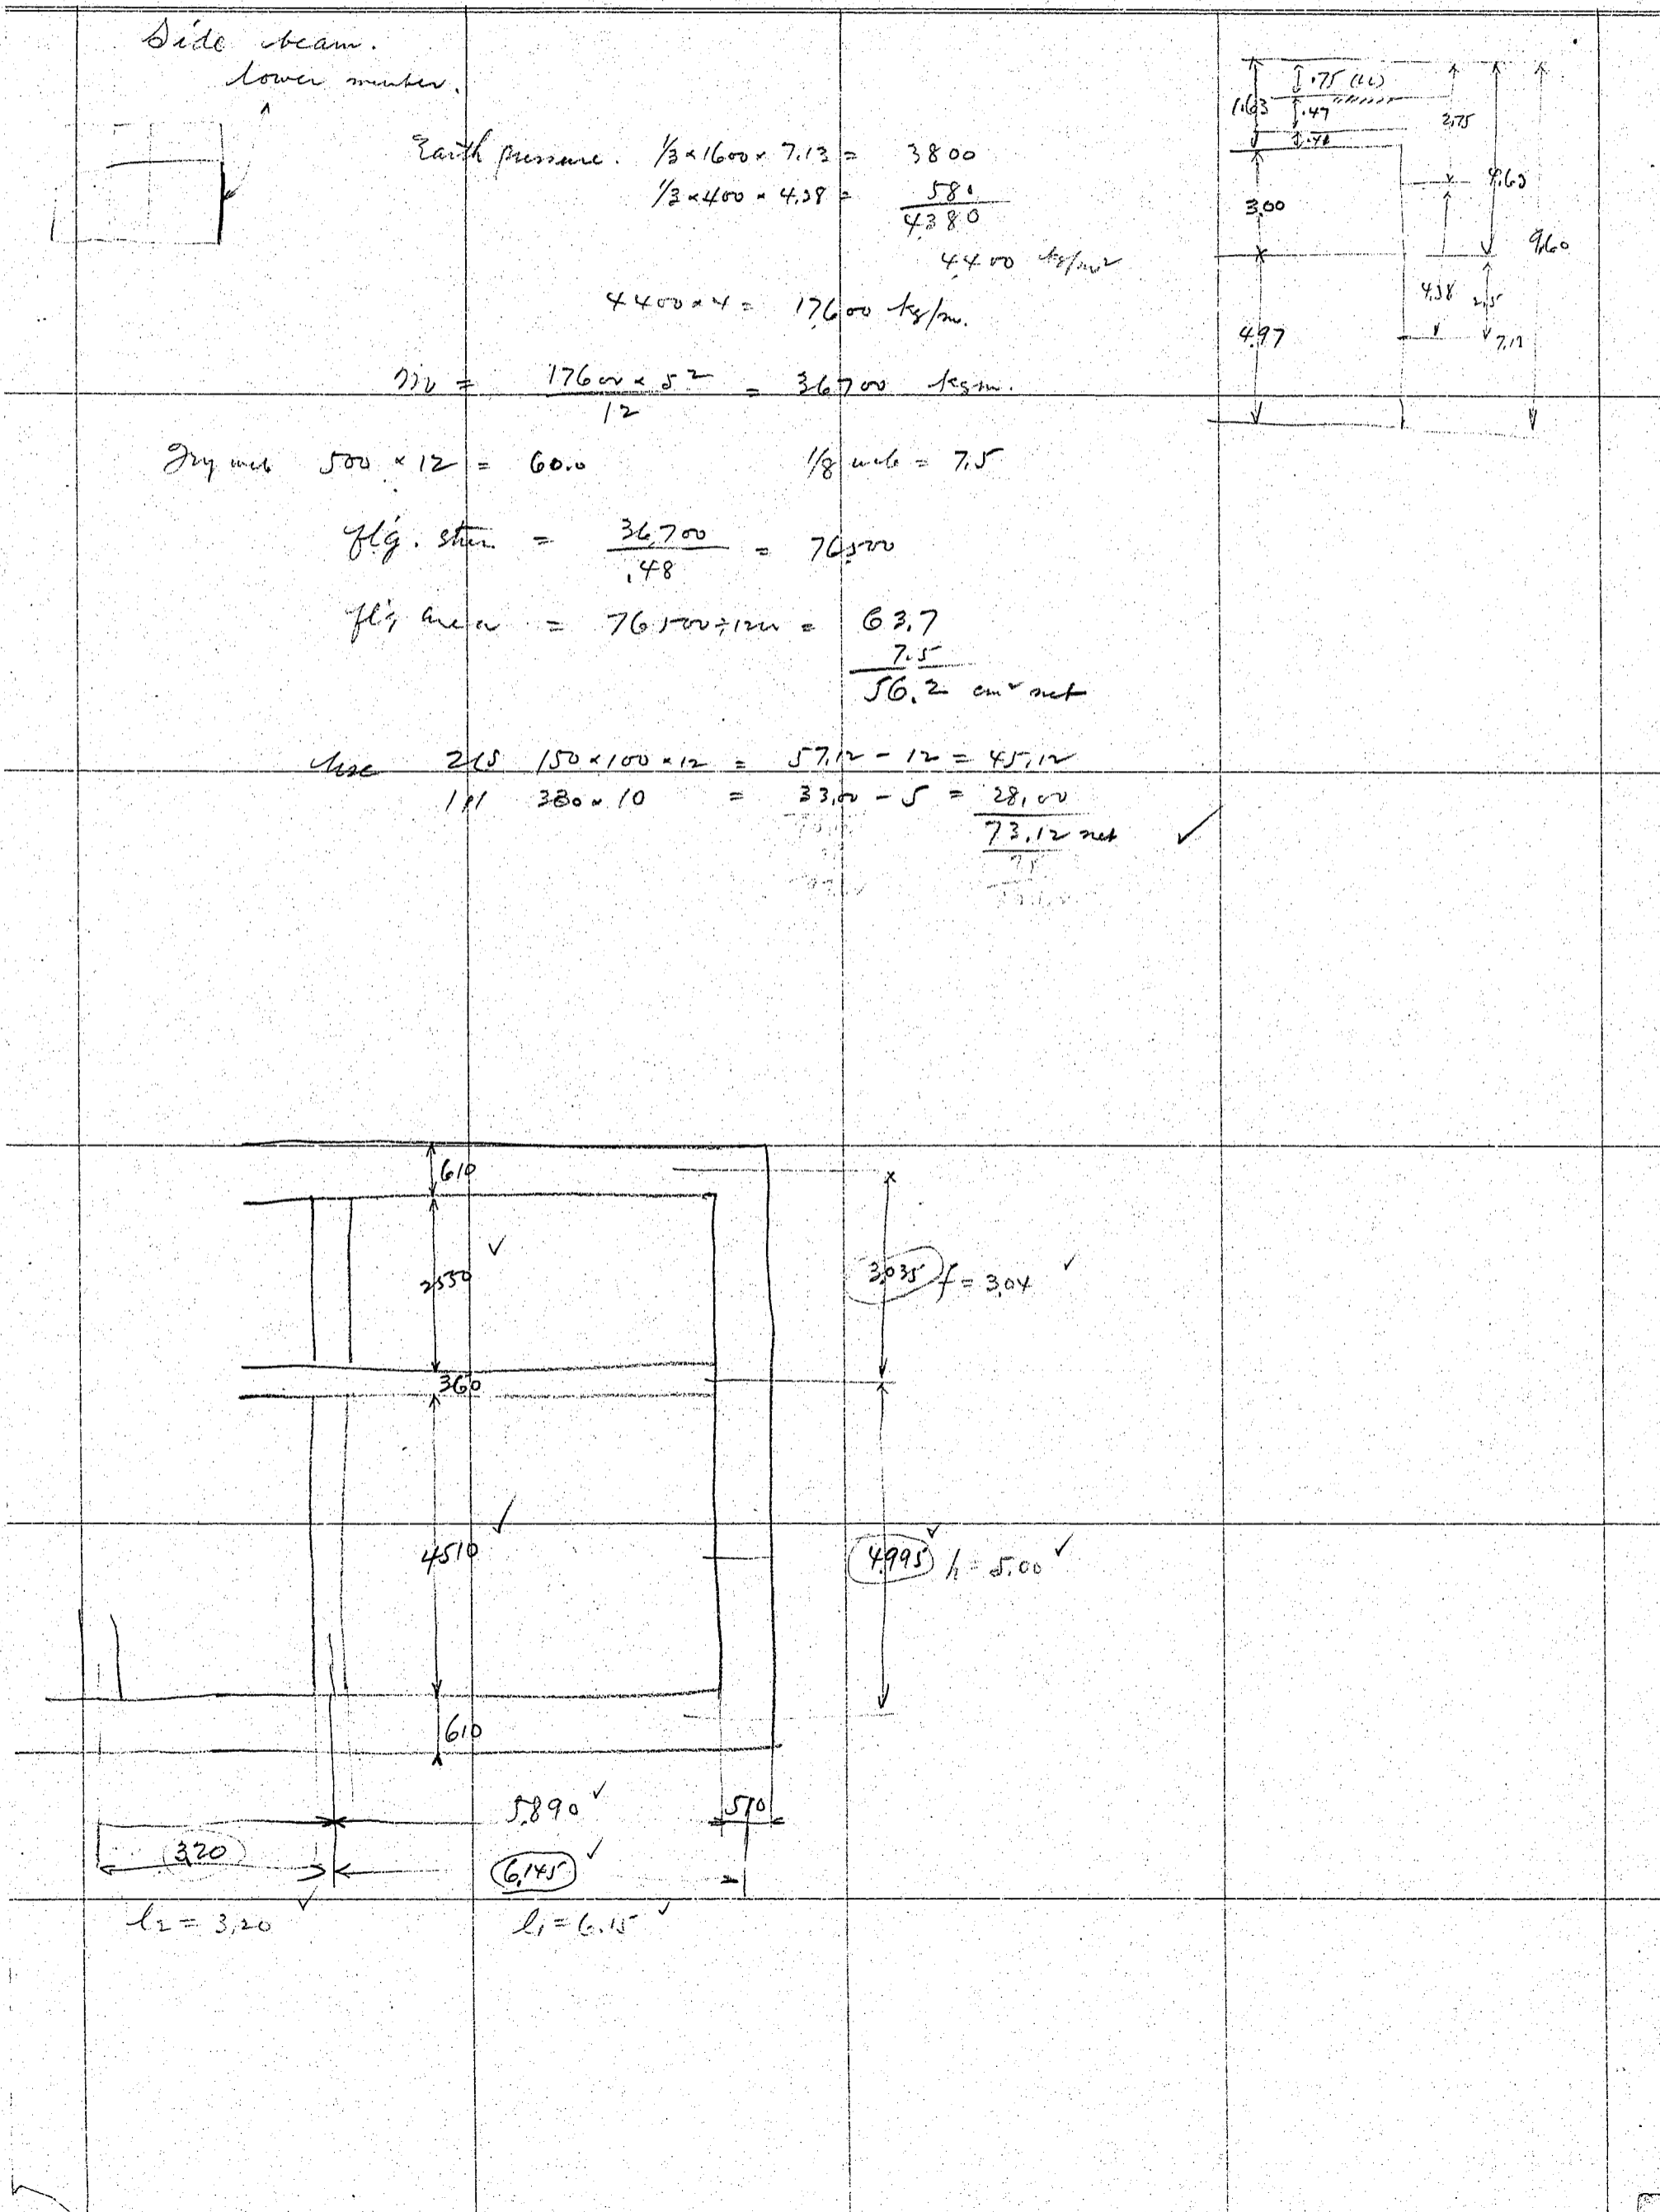 Side beam.
lower member.
Earth pressure. 1/3 × 1600 × 7.13 = 3800
1/3 × 400 × 4.38 = 580
4380
4400 kg/m²
4400 × 4 = 17600 kg/m.
M = 17600 × 5² / 12 = 36700 kgm.
Try web 500 × 12 = 60.0 1/8 web = 7.5
flg. stress = 36,700 / .48 = 76500
flg area = 76500 ÷ 1200 = 63.7
7.5
56.2 cm² net
Use 2Ls 150 × 100 × 12 = 57.12 - 12 = 45.12
1 pl 330 × 10 = 33.00 - 5 = 28.00
73.12 net ✓
.75 (LL)
1.63
.47
2.75
3.00
4.63
9.60
4.38
2.5
4.97
7.13
610
2550 ✓
3.035 f = 3.04 ✓
360
4510 ✓
4.995 ✓ h = 5.00 ✓
610
5.890 ✓ 510
3.20 6.145 ✓
l₂ = 3.20 ✓ l₁ = 6.15 ✓